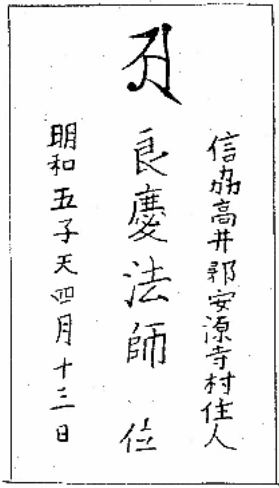 信刕高井郡安源寺村住人
良慶法師 位
明和五子天四月十三日